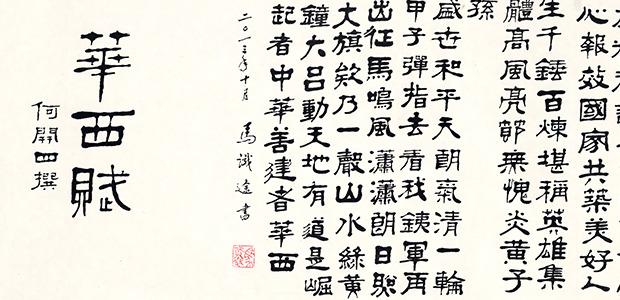 心報效國家共築美好人
生千錘百煉堪稱英雄集
體高風亮節無愧炎黃子
孫
盛世和平天朗氣清一輪
甲子彈指去看我銕軍再
出征馬鳴風瀟瀟朗日照
大旗欸乃一聲山水綠黃
鐘大呂動天地有道是崛
起者中華善建者華西
二〇一三年十月 馬識途書
華西賦
何開四撰